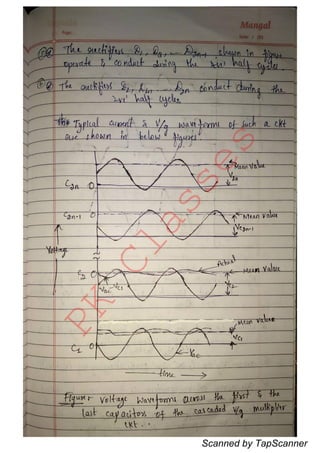 Page :
Mangal
Date : / /20
The rectifiers D1, D3, ... D2n-1 shown in figure
operate & conduct during the +ve half cycles.
The rectifiers D2, D4, ... D2n conduct during the
-ve half cycles
Typical current & V/g waveforms of such a ckt
are shown in below figures
Mean value
V2n
C2n 0
C2n-1 0
Mean value
V2n-1
Voltage
Actual
C2 0
Mean value
Vac
VC1
V2
Mean value
VC1
C1 0
Vac
time
PK Classes
Figure: Voltage waveforms across the first & the
last capacitors of the cascaded V/g multiplier
ckt..
Scanned by TapScanner